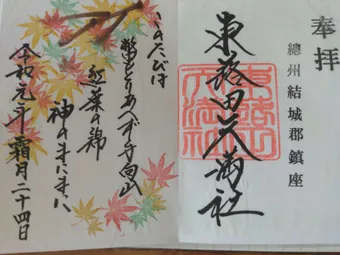 奉拝
總州結城郡鎮座
東蕗田天満社
このたびは
幣とりあへず手向山
紅葉の錦
神のまにまに
令和元年霜月二十四日